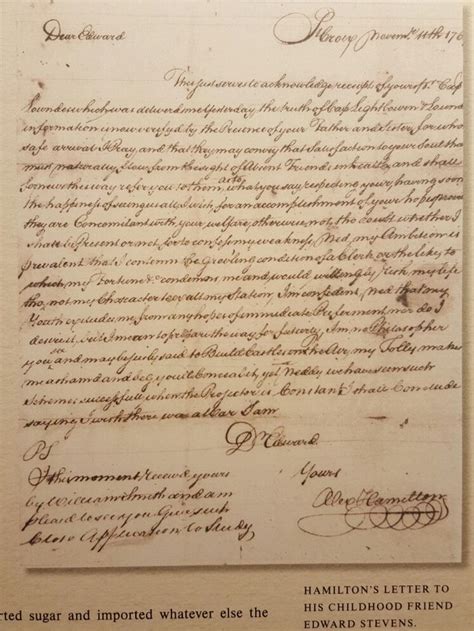 Dear Edward
St Croix Novemr. 11th 176
This just serves to acknowledge receipt of yours Pr. Cap
Lownder which was delivered me Yesterday. the truth of Cap Lightbowen & Lownd
information is now verifyd by the Presence of your Father and Sister for who
safe arrival I Pray, and that they may convey that Satisfaction to your Soul that
must naturally flow from the sight of Absent Friends in health, and shall
for news this way refer you to them, what you say respecting your having soon
the happiness of seeing us all, I wish, for an accomplishment of your hopes provided
they are Concomitant with your welfare, otherwise not, tho doubt whether I
shall be Present or not, for to confess my weakness, Ned, my Ambition is
prevalent that I contemn the Groveling condition of a Clerk or the like, to
which my Fortune &c. condemns me and would willingly risk my life
tho' not my Character to exalt my Station, Im confident, Ned that my
Youth excludes me from any hopes of immediate Preferment nor do I
desire it, but I mean to prepare the way for futurity. Im no Philosopher
you see and may be justly said to Build Castles in the Air, my Folly makes
me asham'd and beg youll Conceal it, yet Neddy we have seen such
Schemes successfull when the Projector is Constant I shall Conclude
saying I wish there was a War I am
Dr. Edward
PS
I this moment receivd yours
Yours
by William Smith and am
pleasd to see you Give such
Alex Hamilton
Close Application to Study
rted sugar and imported whatever else the
HAMILTON'S LETTER TO
HIS CHILDHOOD FRIEND
EDWARD STEVENS.